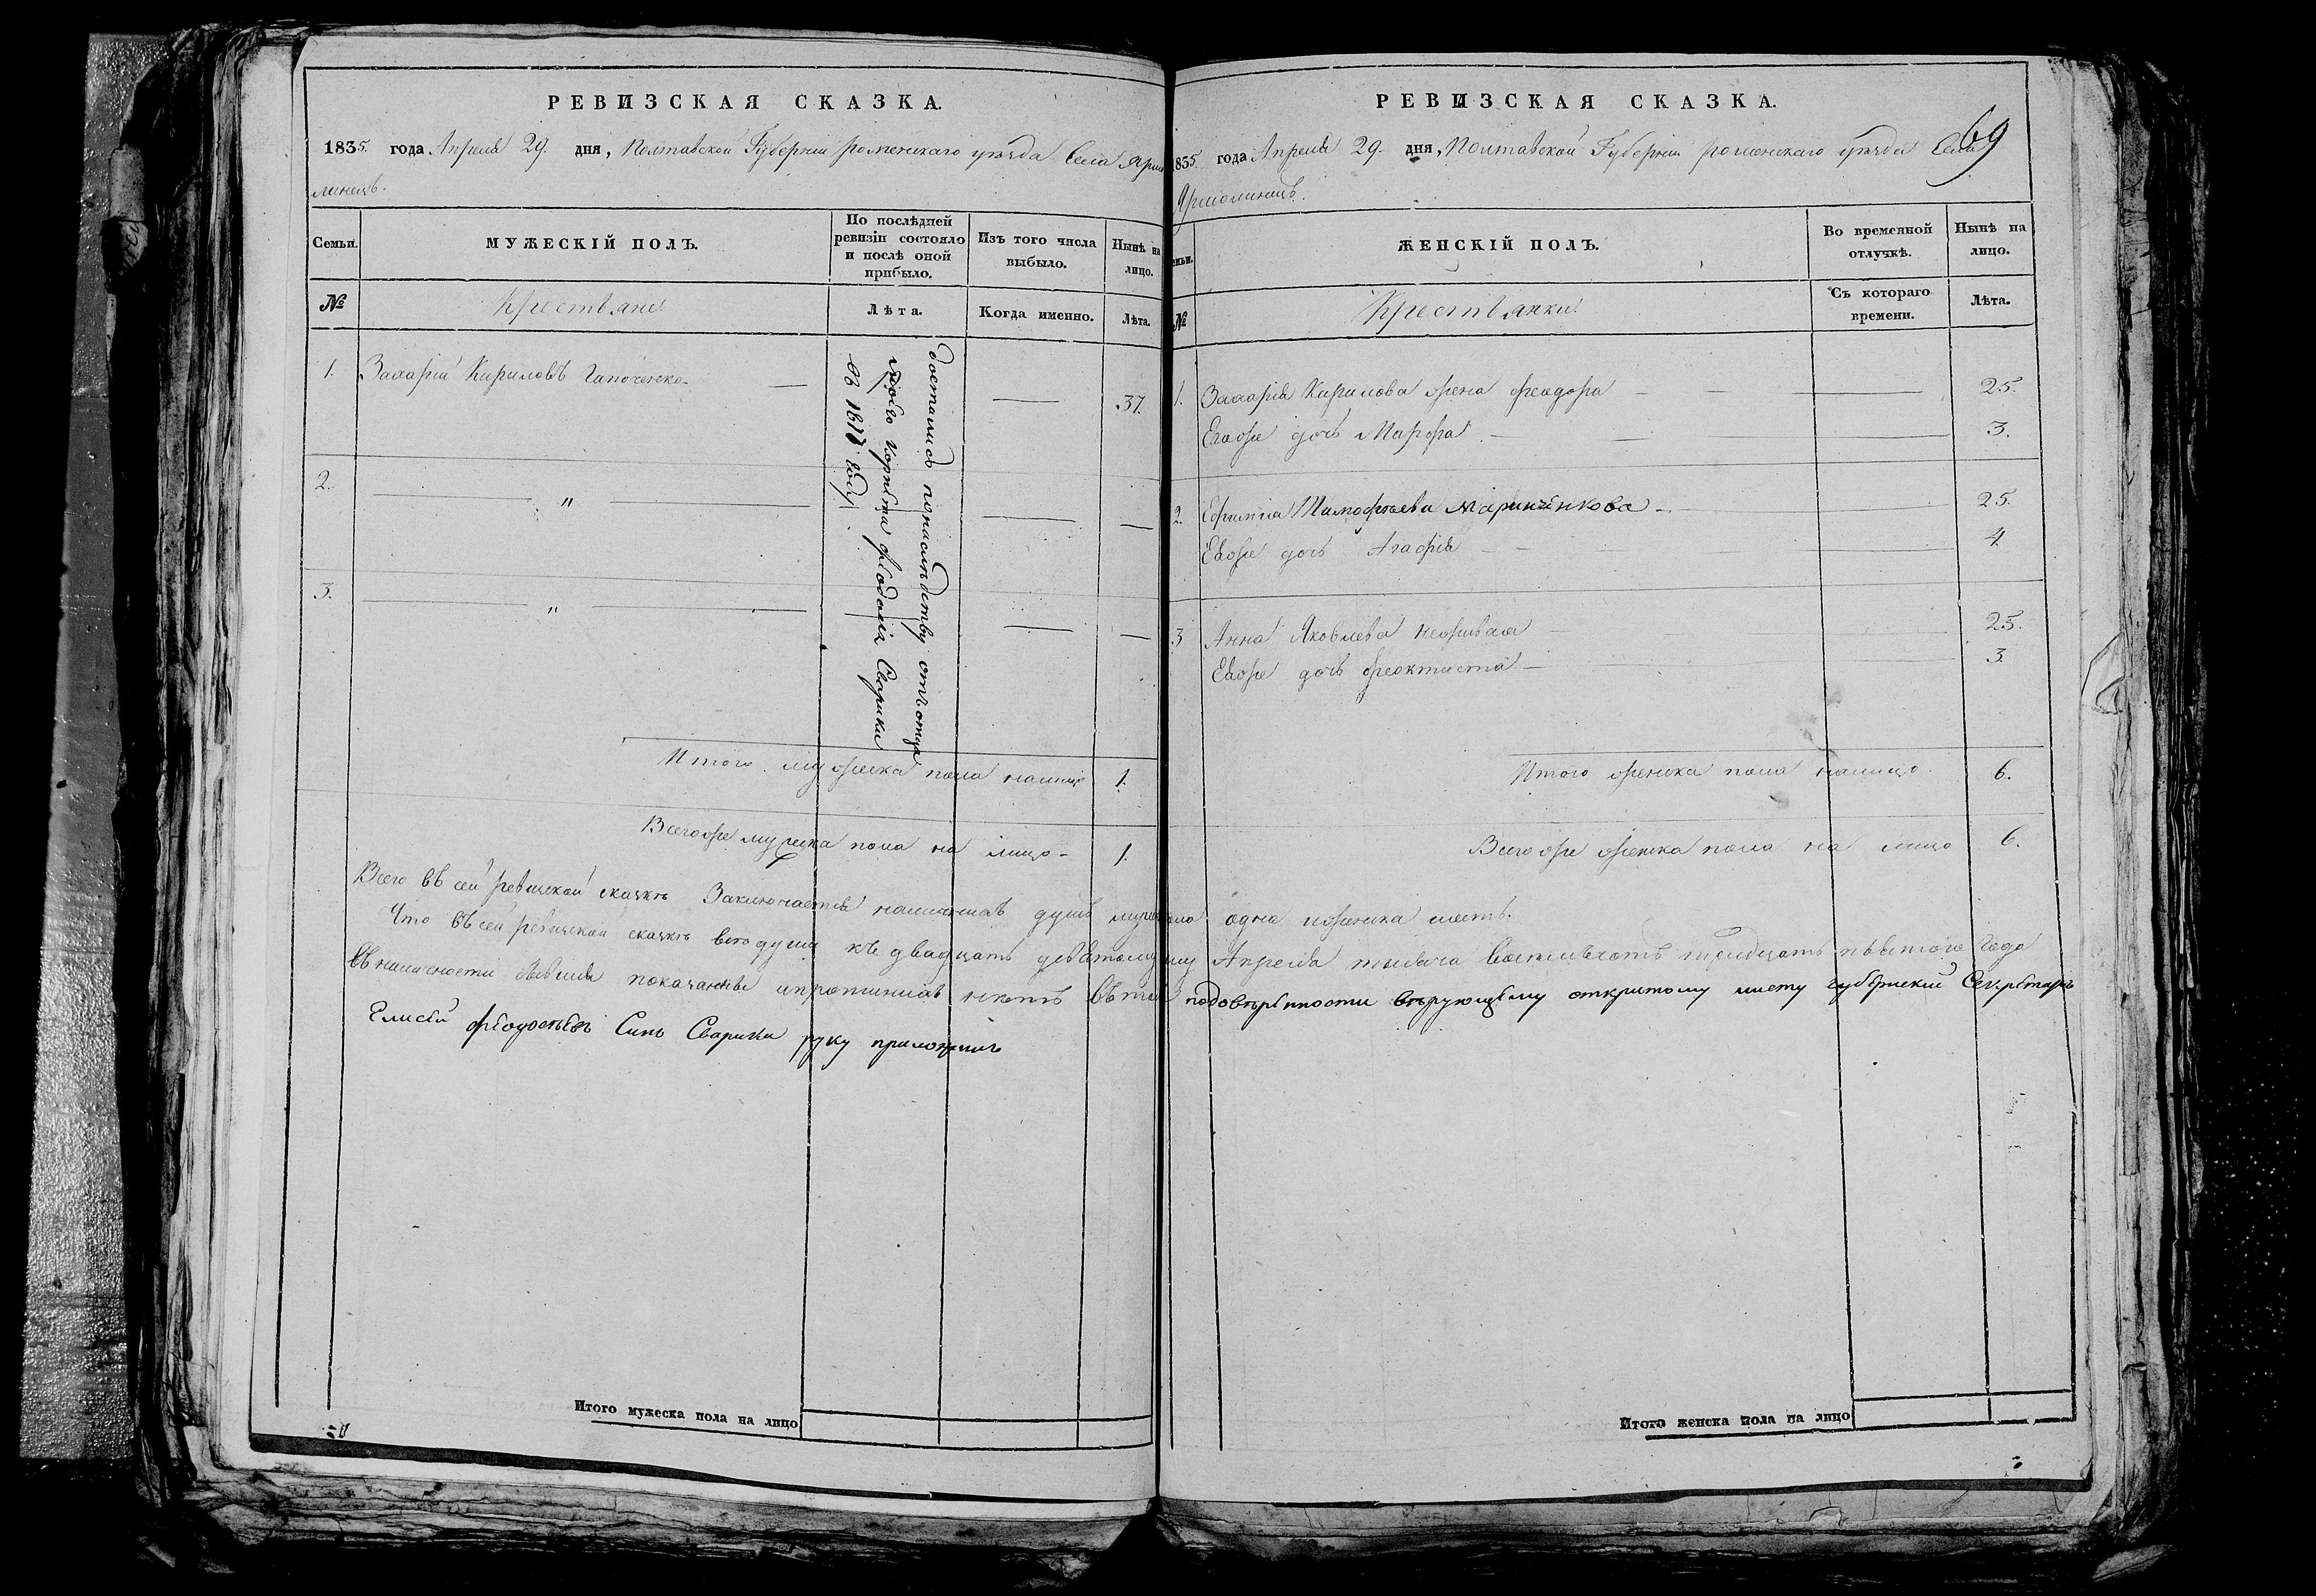 РЕВИЗСКАЯ СКАЗКА.
1835. года Апреля 29. дня, Полтавской Губерніи роменскаго уѣзда Села Ярмо
линецъ.
Семьи.
МУЖЕСКІЙ ПОЛЪ.
По послѣдней
ревизіи состояло
и послѣ оной
прибыло.
Изъ того числа
выбыло.
Нынѣ на
лицо.
№
Крестьяне
Лѣта.
Когда именно.
Лѣта.
1. Захарій Кириловъ Гапоченко — — 37.
достались понаслѣдству отъ отца
Корнета Феодосія Сварики
въ году
2. — " — — —
3. — " — — —
Итого мужеска пола налицо 1.
Всегоже мужеска пола на лицо - 1.
РЕВИЗСКАЯ СКАЗКА.
69
1835. года Апреля 29. дня, Полтавской Губерніи роменскаго уѣзда Села
Ярмолинецъ.
Семьи.
ЖЕНСКІЙ ПОЛЪ.
Во временной
отлучкѣ.
Нынѣ на
лицо.
№
Крестьянки
Съ котораго
времени.
Лѣта.
1. Захарія Кирилова жена Феодора — — 25.
Егоже дочь Марфа — — 3.
2. Ефимія Тимофѣева Маринченкова — 25.
Еяже дочь Агафія — — 4.
3 Анна Яковлева Неживая — 25.
Еяже дочь Феоктиста — 3.
Итого женска пола налицо. 6.
Всегоже женска пола на лицо 6.
Всего въ сей ревизской сказкѣ Заключается наличныхъ душъ мужеска одна иженска шесть.
Что въ сей ревизской сказкѣ всѣ души къ двадцать девятому Апреля тысяча восемьсотъ тридцать пятого года
въ наличности бывшія показанны ипрописныхъ нѣтъ въ томъ подовѣренности вѣрующему открытому листу губернскій Секретарь
Елисей Феодосіевъ Синъ Сварика руку приложилъ
Итого мужеска пола на лицо
Итого женска пола на лицо